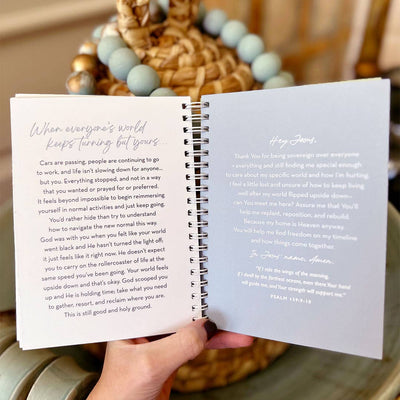 When everyone's world
keeps turning but yours...
Cars are passing, people are continuing to go
to work, and life isn't slowing down for anyone...
but you. Everything stopped, and not in a way
that you wanted or prayed for or preferred.
It feels beyond impossible to begin reimmersing
yourself in normal activities and just keep going.
You'd rather hide than try to understand
how to navigate the new normal this way.
God was with you when you felt like your world
went black and He hasn't turned the light off;
it just feels like it right now. He doesn't expect
you to carry on the rollercoaster of life at the
same speed you've been going. Your world feels
upside down and that's okay. God scooped you
up and He is holding time; take what you need
to gather, resort, and reclaim where you are.
This is still good and holy ground.
Hey Jesus,
Thank You for being sovereign over everyone
+ everything and still finding me special enough
to care about my specific world and how I'm hurting.
I feel a little lost and unsure of how to keep living
well after my world flipped upside down—
can You meet me here? Assure me that You'll
help me replant, reposition, and rebuild.
Because my home is Heaven anyway.
You will help me find freedom on my timeline
and how things come together.
In Jesus' name, Amen.
"If I ride the wings of the morning,
if I dwell by the farthest oceans, even there Your hand
will guide me, and Your strength will support me."
PSALM 139:9-10